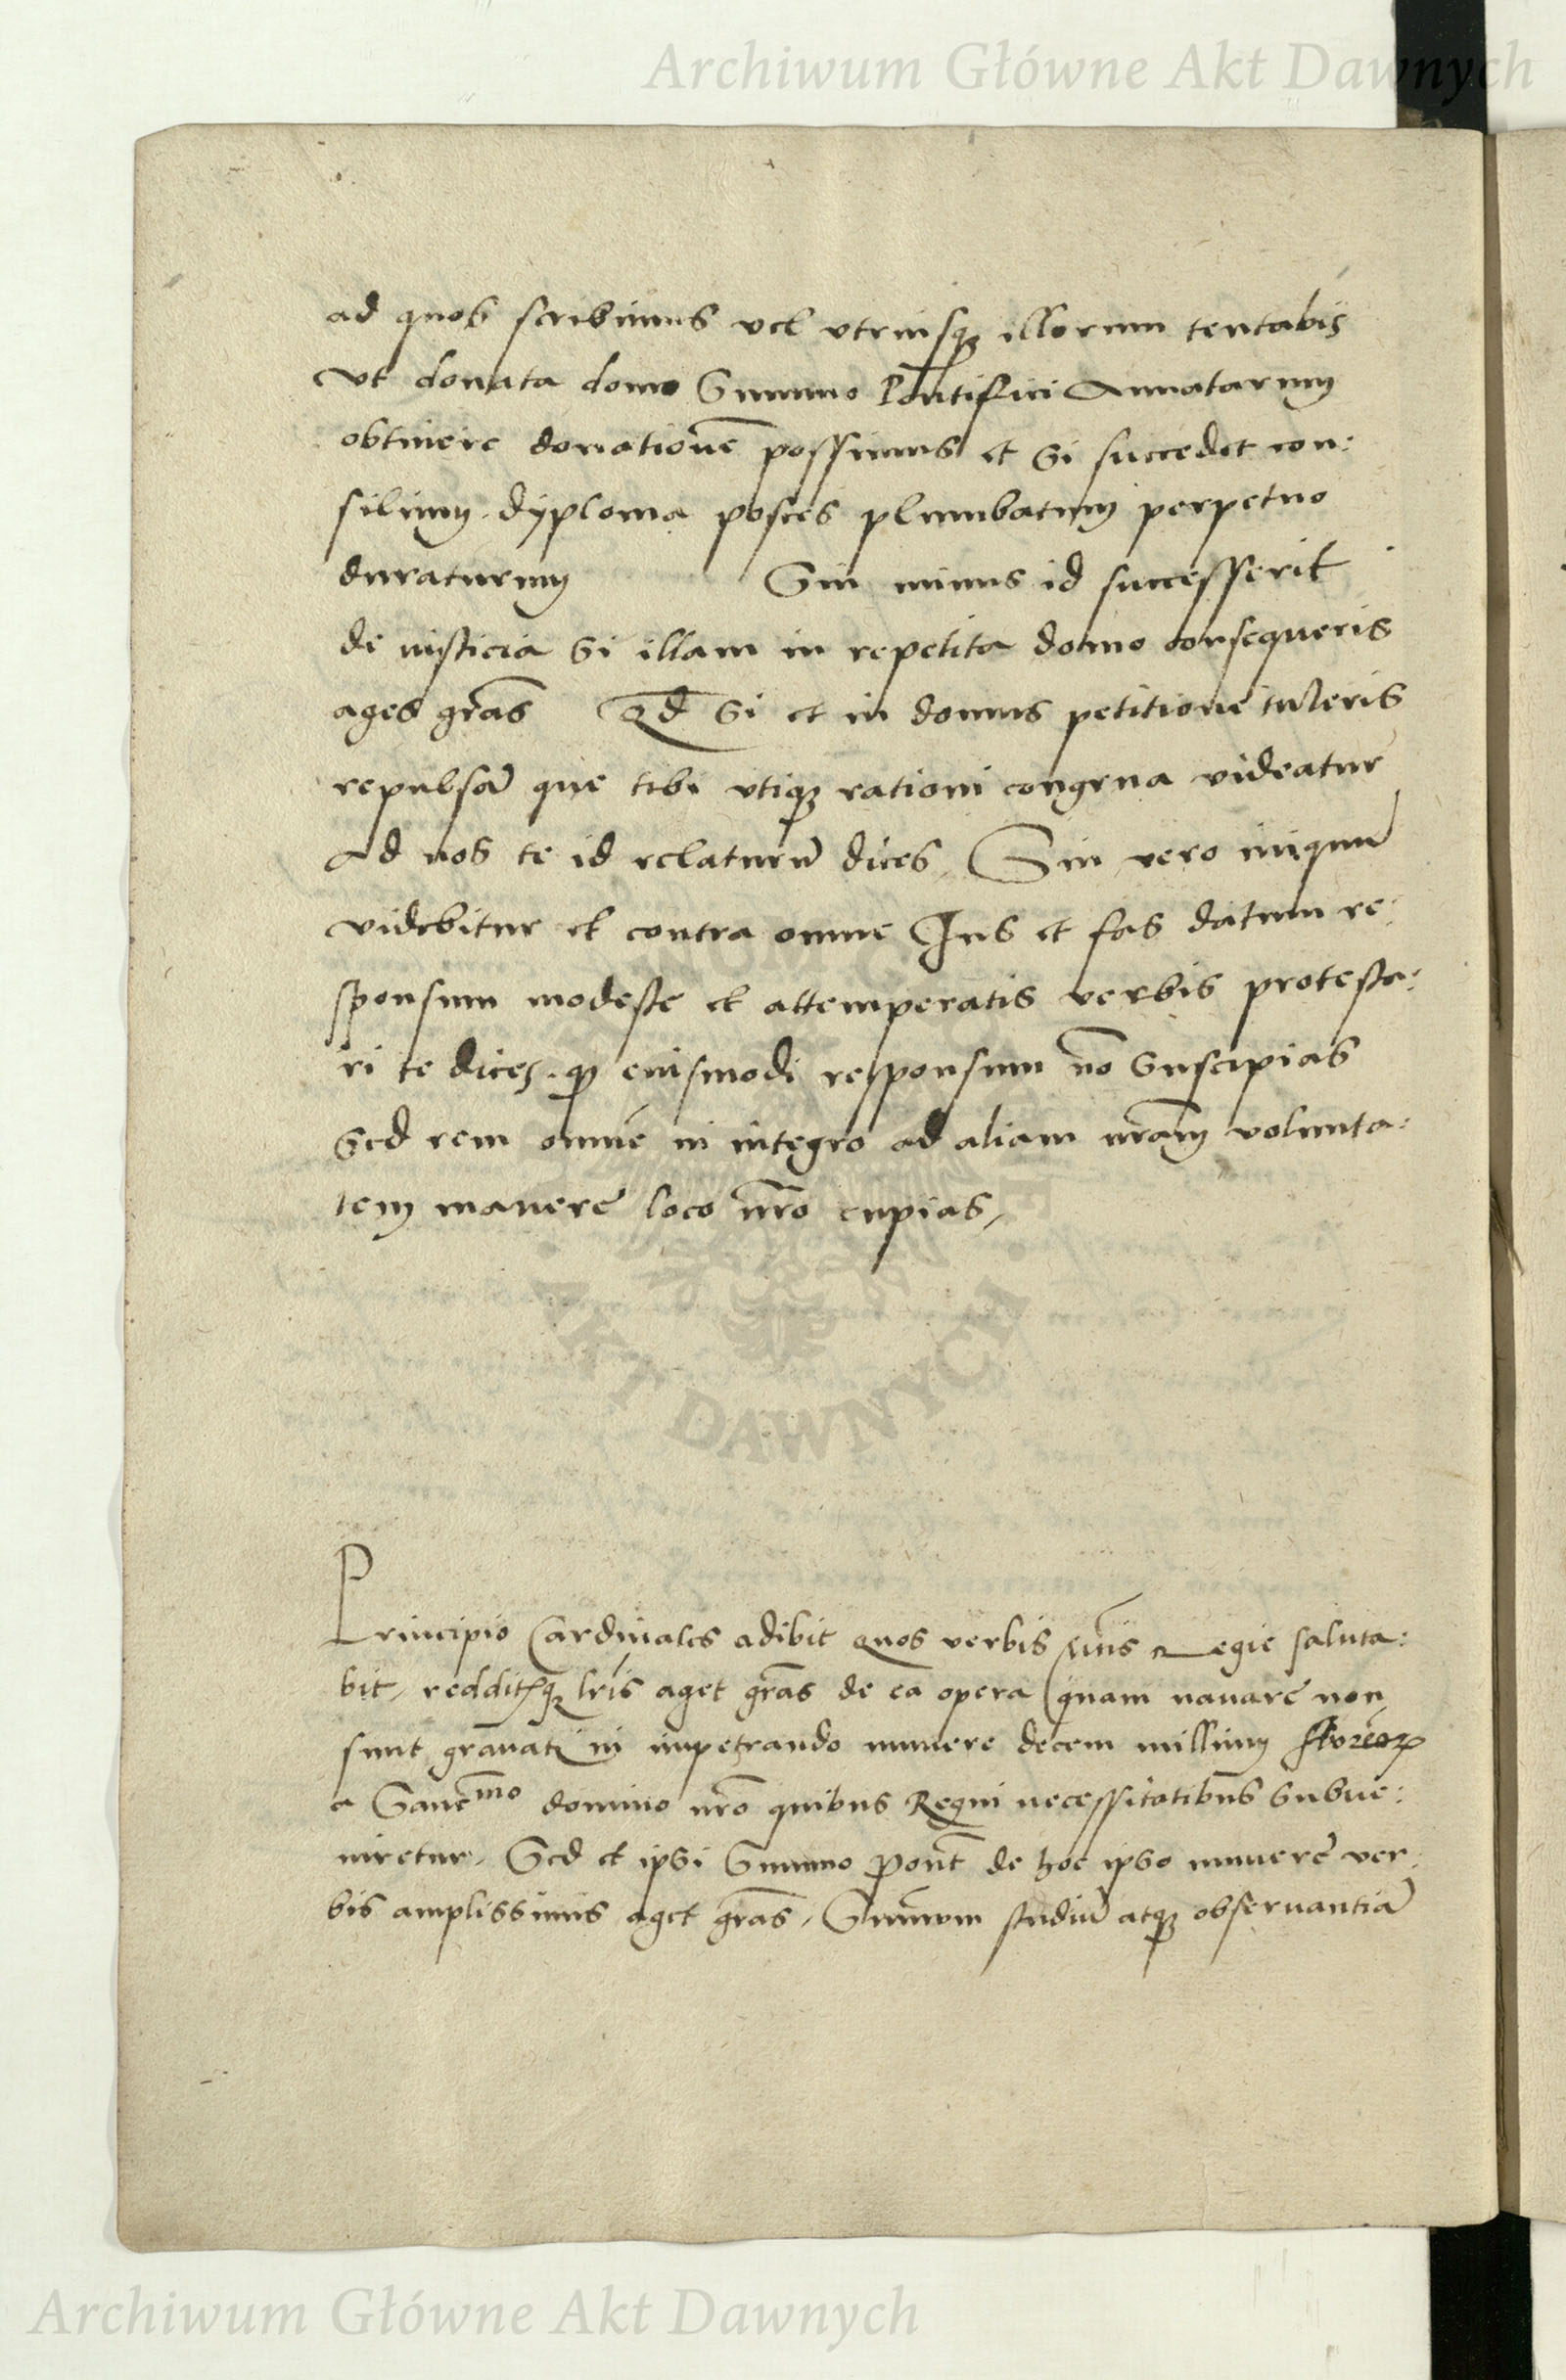 Archiwum Główne Akt Dawnych
ad quos scribimus vel vtriusqꝫ illorum tentabis
vt donata domo Summo Pontifici Annatarum
obtinere donationē possimus et si succedet con:
silium. dyploma posces plumbatum perpetuo
duraturum Sin minus id successerit
de iusticia si illam in repetita domo consequeris
ages grās Qd̄ si et in domus petitionē tuleris
repulsā que tibi vtiqꝫ rationi congrua videatur
ad nos te id relaturū dices, Sin vero iniquū
videbitur et contra omne Ius et fas datum re:
sponsum modeste et attemperatis verbis protesta:
ri te dices. ꝙ eiusmodi responsum nō suscipias
Sed rem omnē in integro ad aliam nrām volunta:
tem manere loco nrō cupias,
AKT DAWNYCH
Principio Cardinales adibit quos verbis Regie saluta:
bit, redditisqꝫ lrīs aget grās de ea opera quam nauare non
sunt grauati in impetrando munere decem millium florenoꝝ
a Sanc̄mo domino nrō quibus Regni necessitatibus subue:
niretur. Sed et ipsi Summo Pont̄ de hoc ipso munere ver:
bis amplissimis aget grās, Summum studiū atqꝫ obseruantiā
Archiwum Główne Akt Dawnych